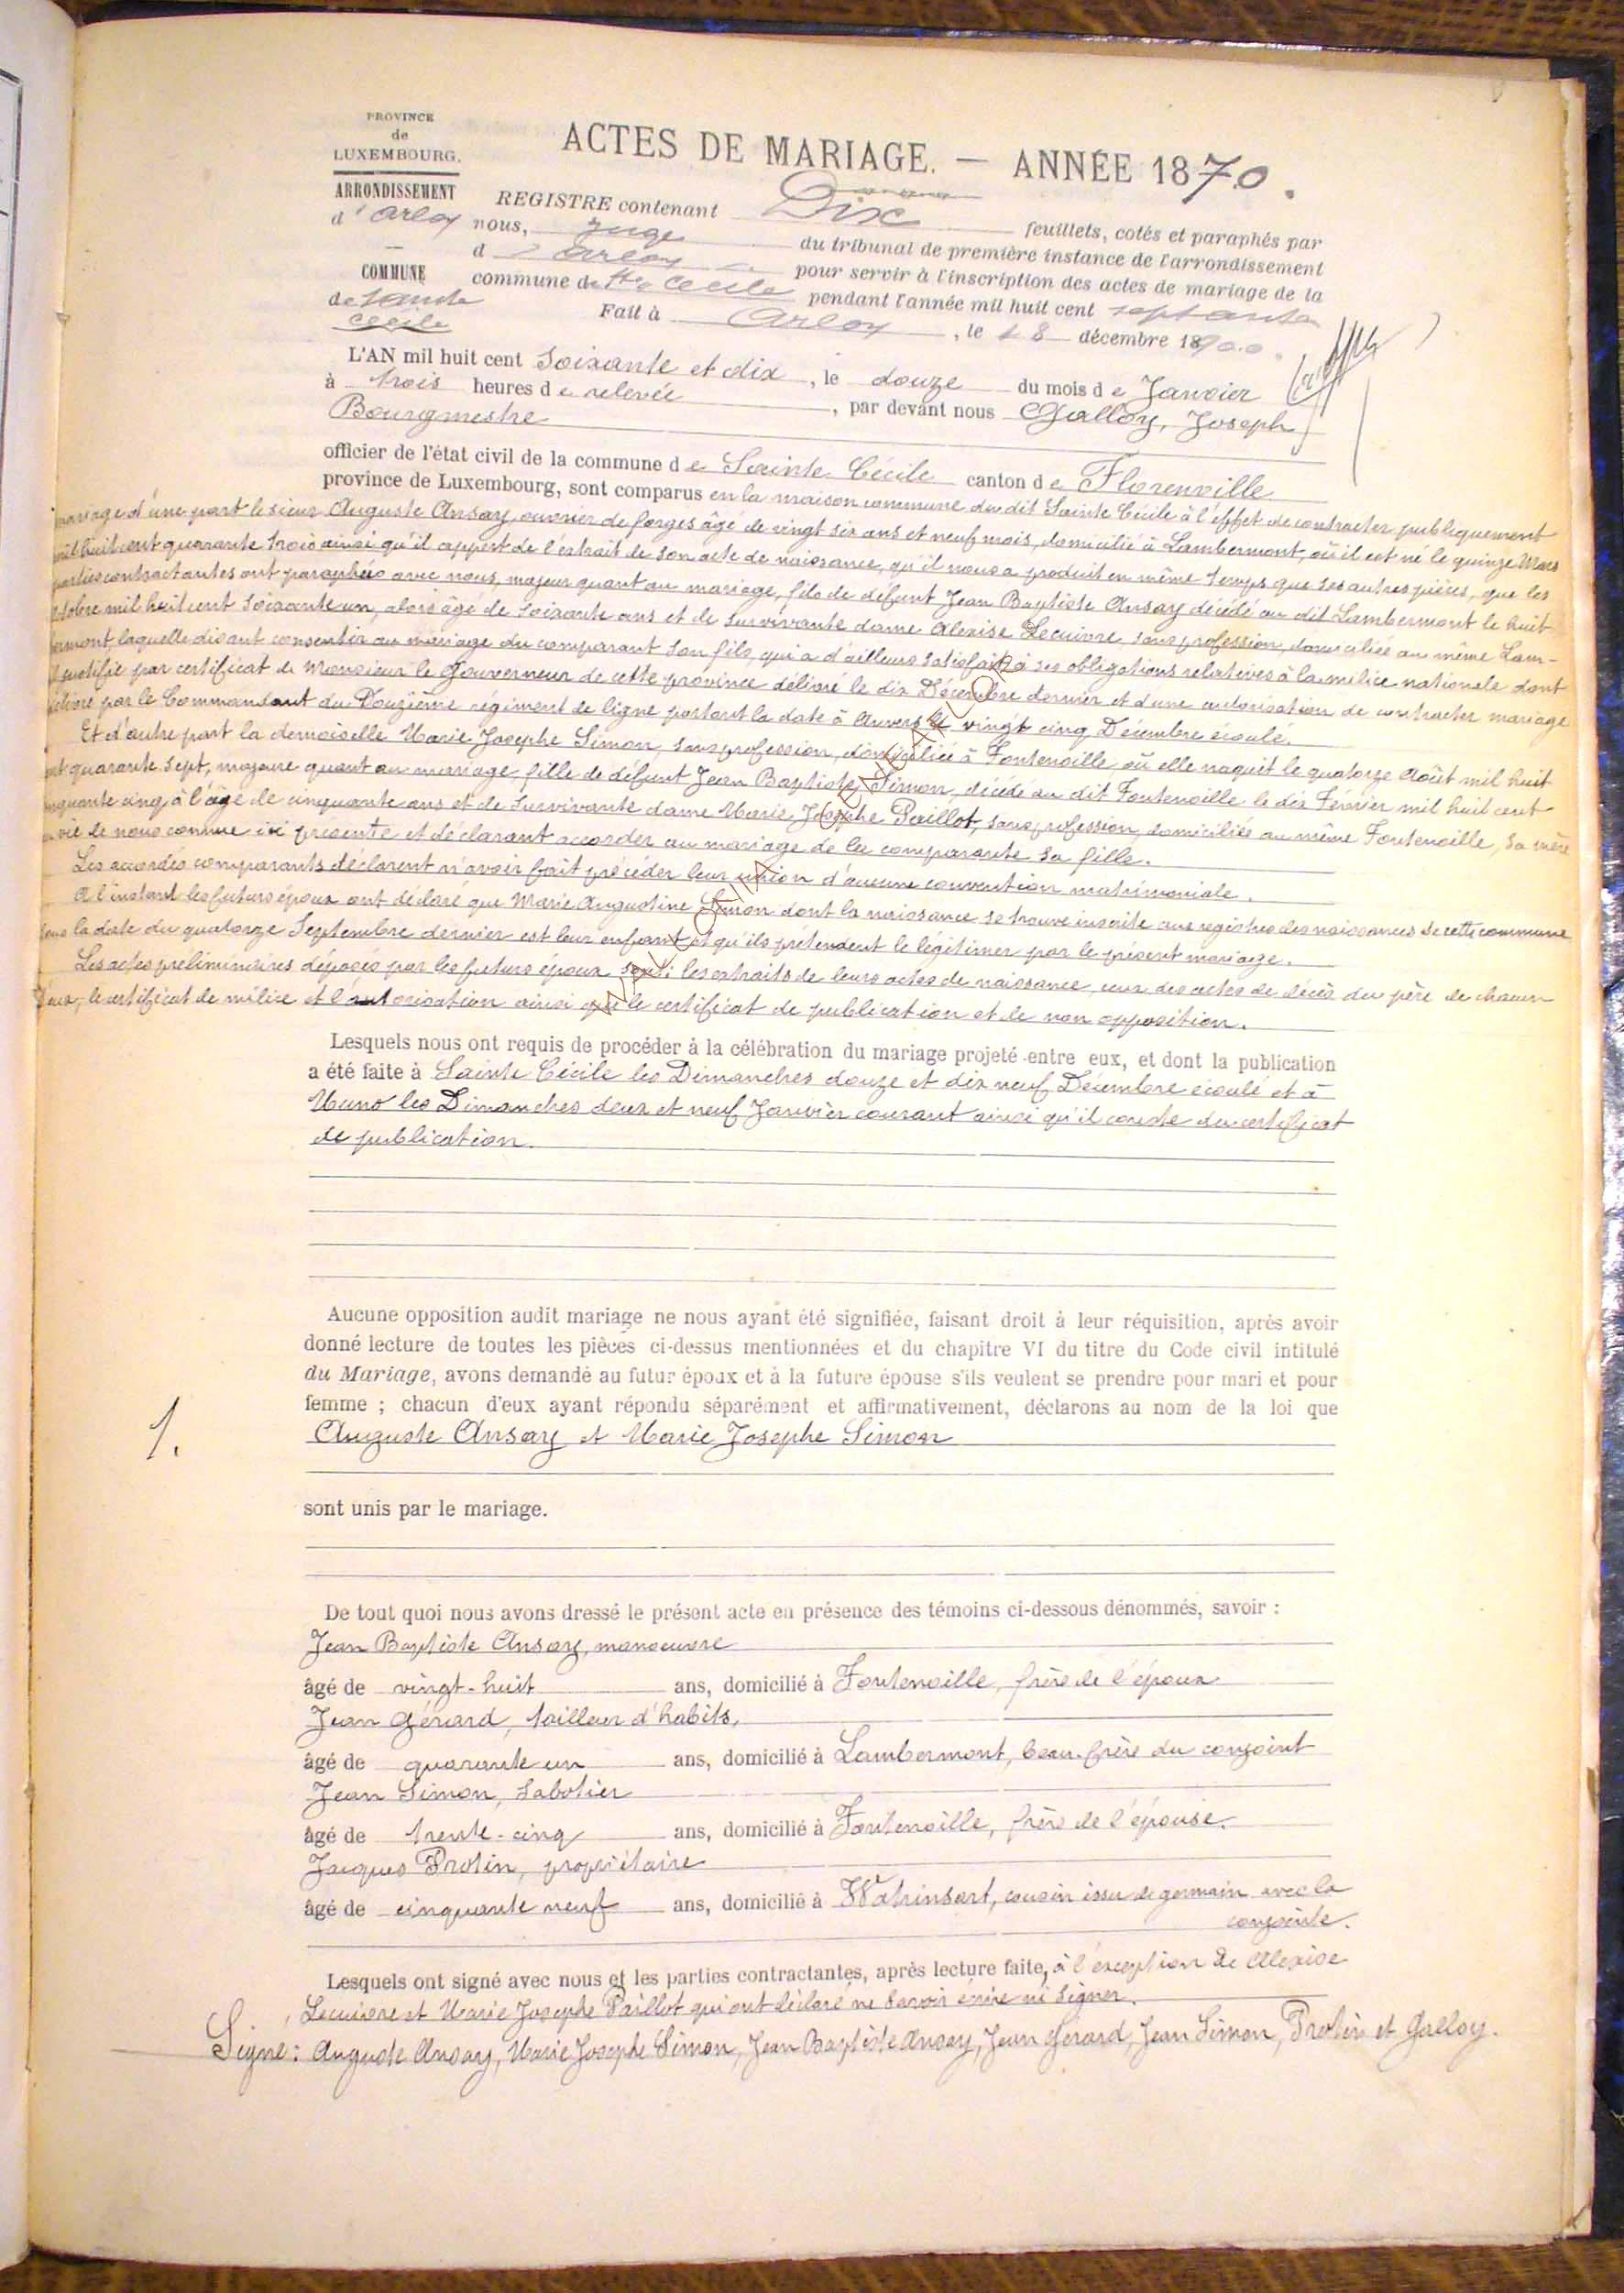 PROVINCE
de
LUXEMBOURG.
ARRONDISSEMENT
d'Arlon
COMMUNE
de Sainte
Cécile
ACTES DE MARIAGE. — ANNÉE 1870.
REGISTRE contenant Dix feuillets, cotés et paraphés par
nous, juge du tribunal de première instance de l'arrondissement
d'Arlon pour servir à l'inscription des actes de mariage de la
commune de Ste Cécile pendant l'année mil huit cent septante
Fait à Arlon, le 18 décembre 18
L'AN mil huit cent soixante et dix, le douze du mois de Janvier
à trois heures de relevée, par devant nous Galloy, Joseph
Bourgmestre
officier de l'état civil de la commune de Sainte Cécile canton de Florenville
province de Luxembourg, sont comparus en la maison commune du dit Sainte Cécile à l'effet de contracter publiquement
mariage d'une part le sieur Auguste Ansay, ouvrier de forges âgé de vingt six ans et neuf mois, domicilié à Lambermont, où il est né le quinze Mars
mil huit cent quarante trois ainsi qu'il appert de l'extrait de son acte de naissance, qu'il nous a produit en même temps que ses autres pièces, que les
parties contractantes ont paraphées avec nous, majeur quant au mariage, fils de défunt Jean Baptiste Ansay décédé au dit Lambermont le huit
octobre mil huit cent soixante un, alors âgé de soixante ans et de survivante dame Alexise Lecuivre, sans profession, domiciliée au même Lam-
bermont, laquelle disant consentir au mariage du comparant son fils, qui a d'ailleurs satisfait à ses obligations relatives à la milice nationale dont
il justifie par certificat de Monsieur le Gouverneur de cette province délivré le dix Décembre dernier et d'une autorisation de contracter mariage
délivré par le Commandant du Douzième régiment de ligne portant la date à Anvers le vingt cinq Décembre écoulé.
Et d'autre part la demoiselle Marie Josephe Simon, sans profession, domiciliée à Fontenoille où elle naquit le quatorze Août mil huit
cent quarante sept, majeure quant au mariage, fille de défunt Jean Baptiste Simon, décédé au dit Fontenoille le dix Février mil huit cent
cinquante cinq à l'âge de cinquante ans et de survivante dame Marie Josephe Paillot, sans profession, domiciliée au même Fontenoille, sa mère
en vie de nous connue ici présente et déclarant accorder au mariage de la comparante sa fille.
Les accordés comparants déclarent n'avoir fait précéder leur union d'aucune convention matrimoniale.
A l'instant les futurs époux ont déclaré que Marie Augustine Simon dont la naissance se trouve inscrite aux registres des naissances de cette commune
sous la date du quatorze Septembre dernier est leur enfant et qu'ils prétendent le légitimer par le présent mariage.
Les actes préliminaires déposés par les futurs époux sont: les extraits de leurs actes de naissance, ceux des actes de décès du père de chacun
d'eux, le certificat de milice et l'autorisation ainsi que le certificat de publication et de non opposition.
Lesquels nous ont requis de procéder à la célébration du mariage projeté entre eux, et dont la publication
a été faite à Sainte Cécile les Dimanches douze et dix neuf Décembre écoulé et à
Muno les Dimanches deux et neuf Janvier courant ainsi qu'il conste du certificat
de publication.
Aucune opposition audit mariage ne nous ayant été signifiée, faisant droit à leur réquisition, après avoir
donné lecture de toutes les pièces ci-dessus mentionnées et du chapitre VI du titre du Code civil intitulé
du Mariage, avons demandé au futur époux et à la future épouse s'ils veulent se prendre pour mari et pour
femme ; chacun d'eux ayant répondu séparément et affirmativement, déclarons au nom de la loi que
1.
Auguste Ansay et Marie Josephe Simon
sont unis par le mariage.
De tout quoi nous avons dressé le présent acte en présence des témoins ci-dessous dénommés, savoir :
Jean Baptiste Ansay, manoeuvre
âgé de vingt-huit ans, domicilié à Fontenoille, frère de l'époux
Jean Gérard, tailleur d'habits,
âgé de quarante un ans, domicilié à Lambermont, beau-frère du conjoint
Jean Simon, sabotier
âgé de trente-cinq ans, domicilié à Fontenoille, frère de l'épouse.
Jacques Protin, propriétaire
âgé de cinquante neuf ans, domicilié à Watrinsart, cousin issu de germain avec la
conjointe.
Lesquels ont signé avec nous et les parties contractantes, après lecture faite, à l'exception de Alexise
Lecuivre et Marie Josephe Paillot qui ont déclaré ne savoir écrire ni signer.
Signé: Auguste Ansay, Marie Josephe Simon, Jean Baptiste Ansay, Jean Gérard, Jean Simon, Protin et Galloy.